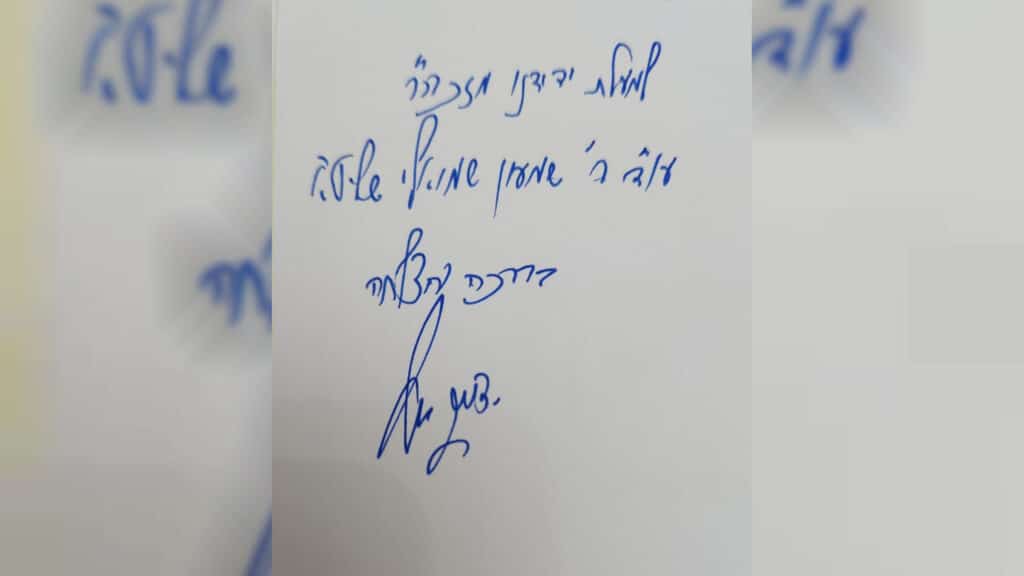 למעלת ידידנו מזכה"ר
עו"ד ר' שמעון שמואלי שליט"א
ברכה והצלחה